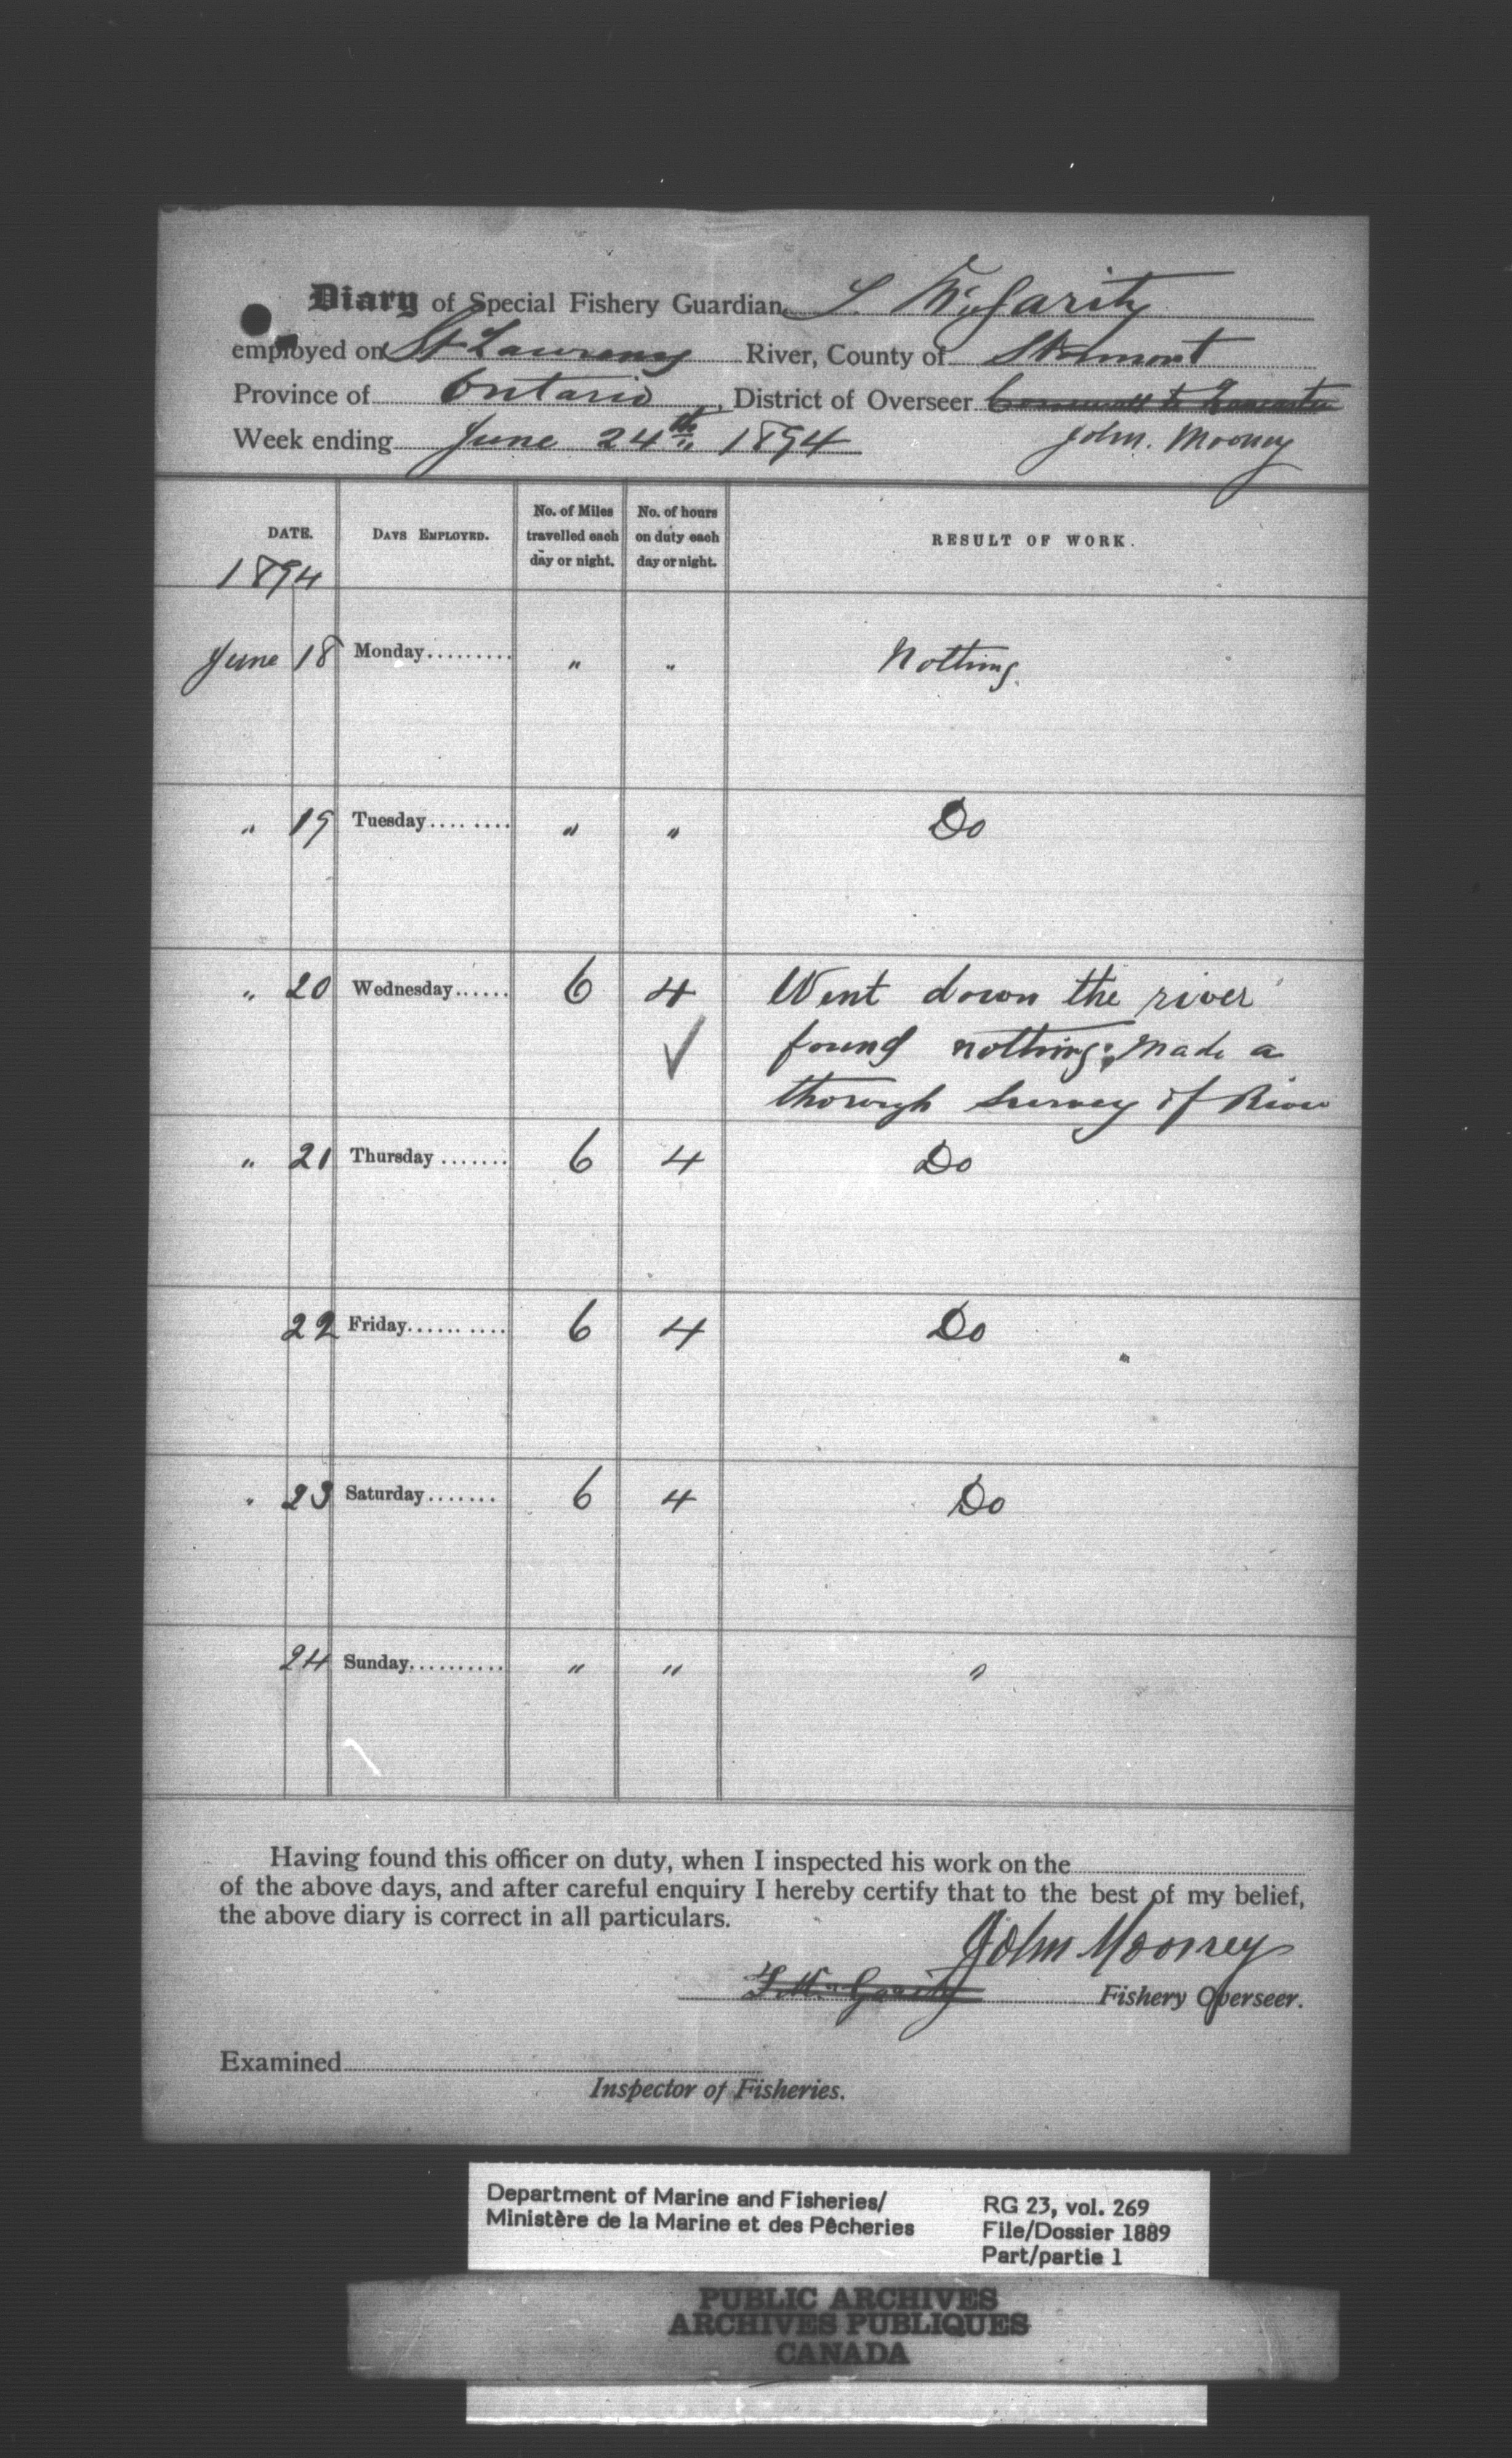 Diary of Special Fishery Guardian McGarity
employed on St Lawrence River, County of Stormont
Province of Ontario, District of Overseer Cornwall to Lancaster
Week ending June 24th 1894 John. Mooney
DATE. DAYS EMPLOYED. No. of Miles travelled each day or night. No. of hours on duty each day or night. RESULT OF WORK.
1894
June 18 Monday......... " " Nothing.
" 19 Tuesday........ " " Do
" 20 Wednesday...... 6 4 Went down the river
✓ found nothing; Made a
thorough Survey of River
" 21 Thursday....... 6 4 Do
22 Friday.......... 6 4 Do
" 23 Saturday....... 6 4 Do
24 Sunday.......... " " "
Having found this officer on duty, when I inspected his work on the
of the above days, and after careful enquiry I hereby certify that to the best of my belief,
the above diary is correct in all particulars.
John Mooney
McGarity Fishery Overseer.
Examined
Inspector of Fisheries.
Department of Marine and Fisheries/
Ministère de la Marine et des Pêcheries
RG 23, vol. 269
File/Dossier 1889
Part/partie 1
PUBLIC ARCHIVES
ARCHIVES PUBLIQUES
CANADA